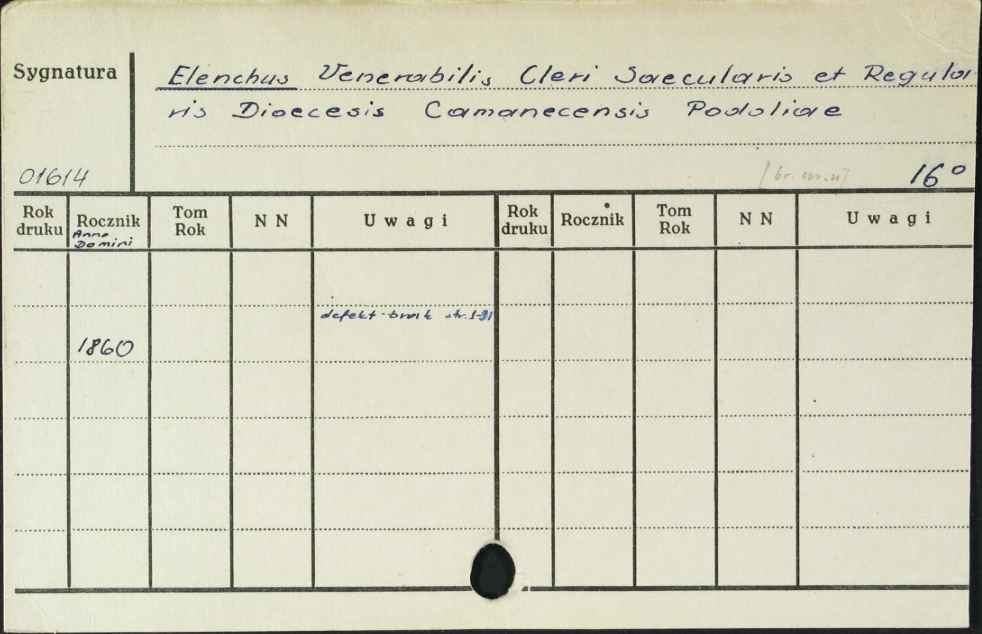 Sygnatura
Elenchus Venerabilis Cleri Saecularis et Regula
ris Dioecesis Camanecensis Podoliae
01614
[br.m.w] 16°
Rok druku Rocznik Tom Rok N N Uwagi Rok druku Rocznik Tom Rok N N Uwagi
Anno Domini
defekt - brak str. 1-91
1860